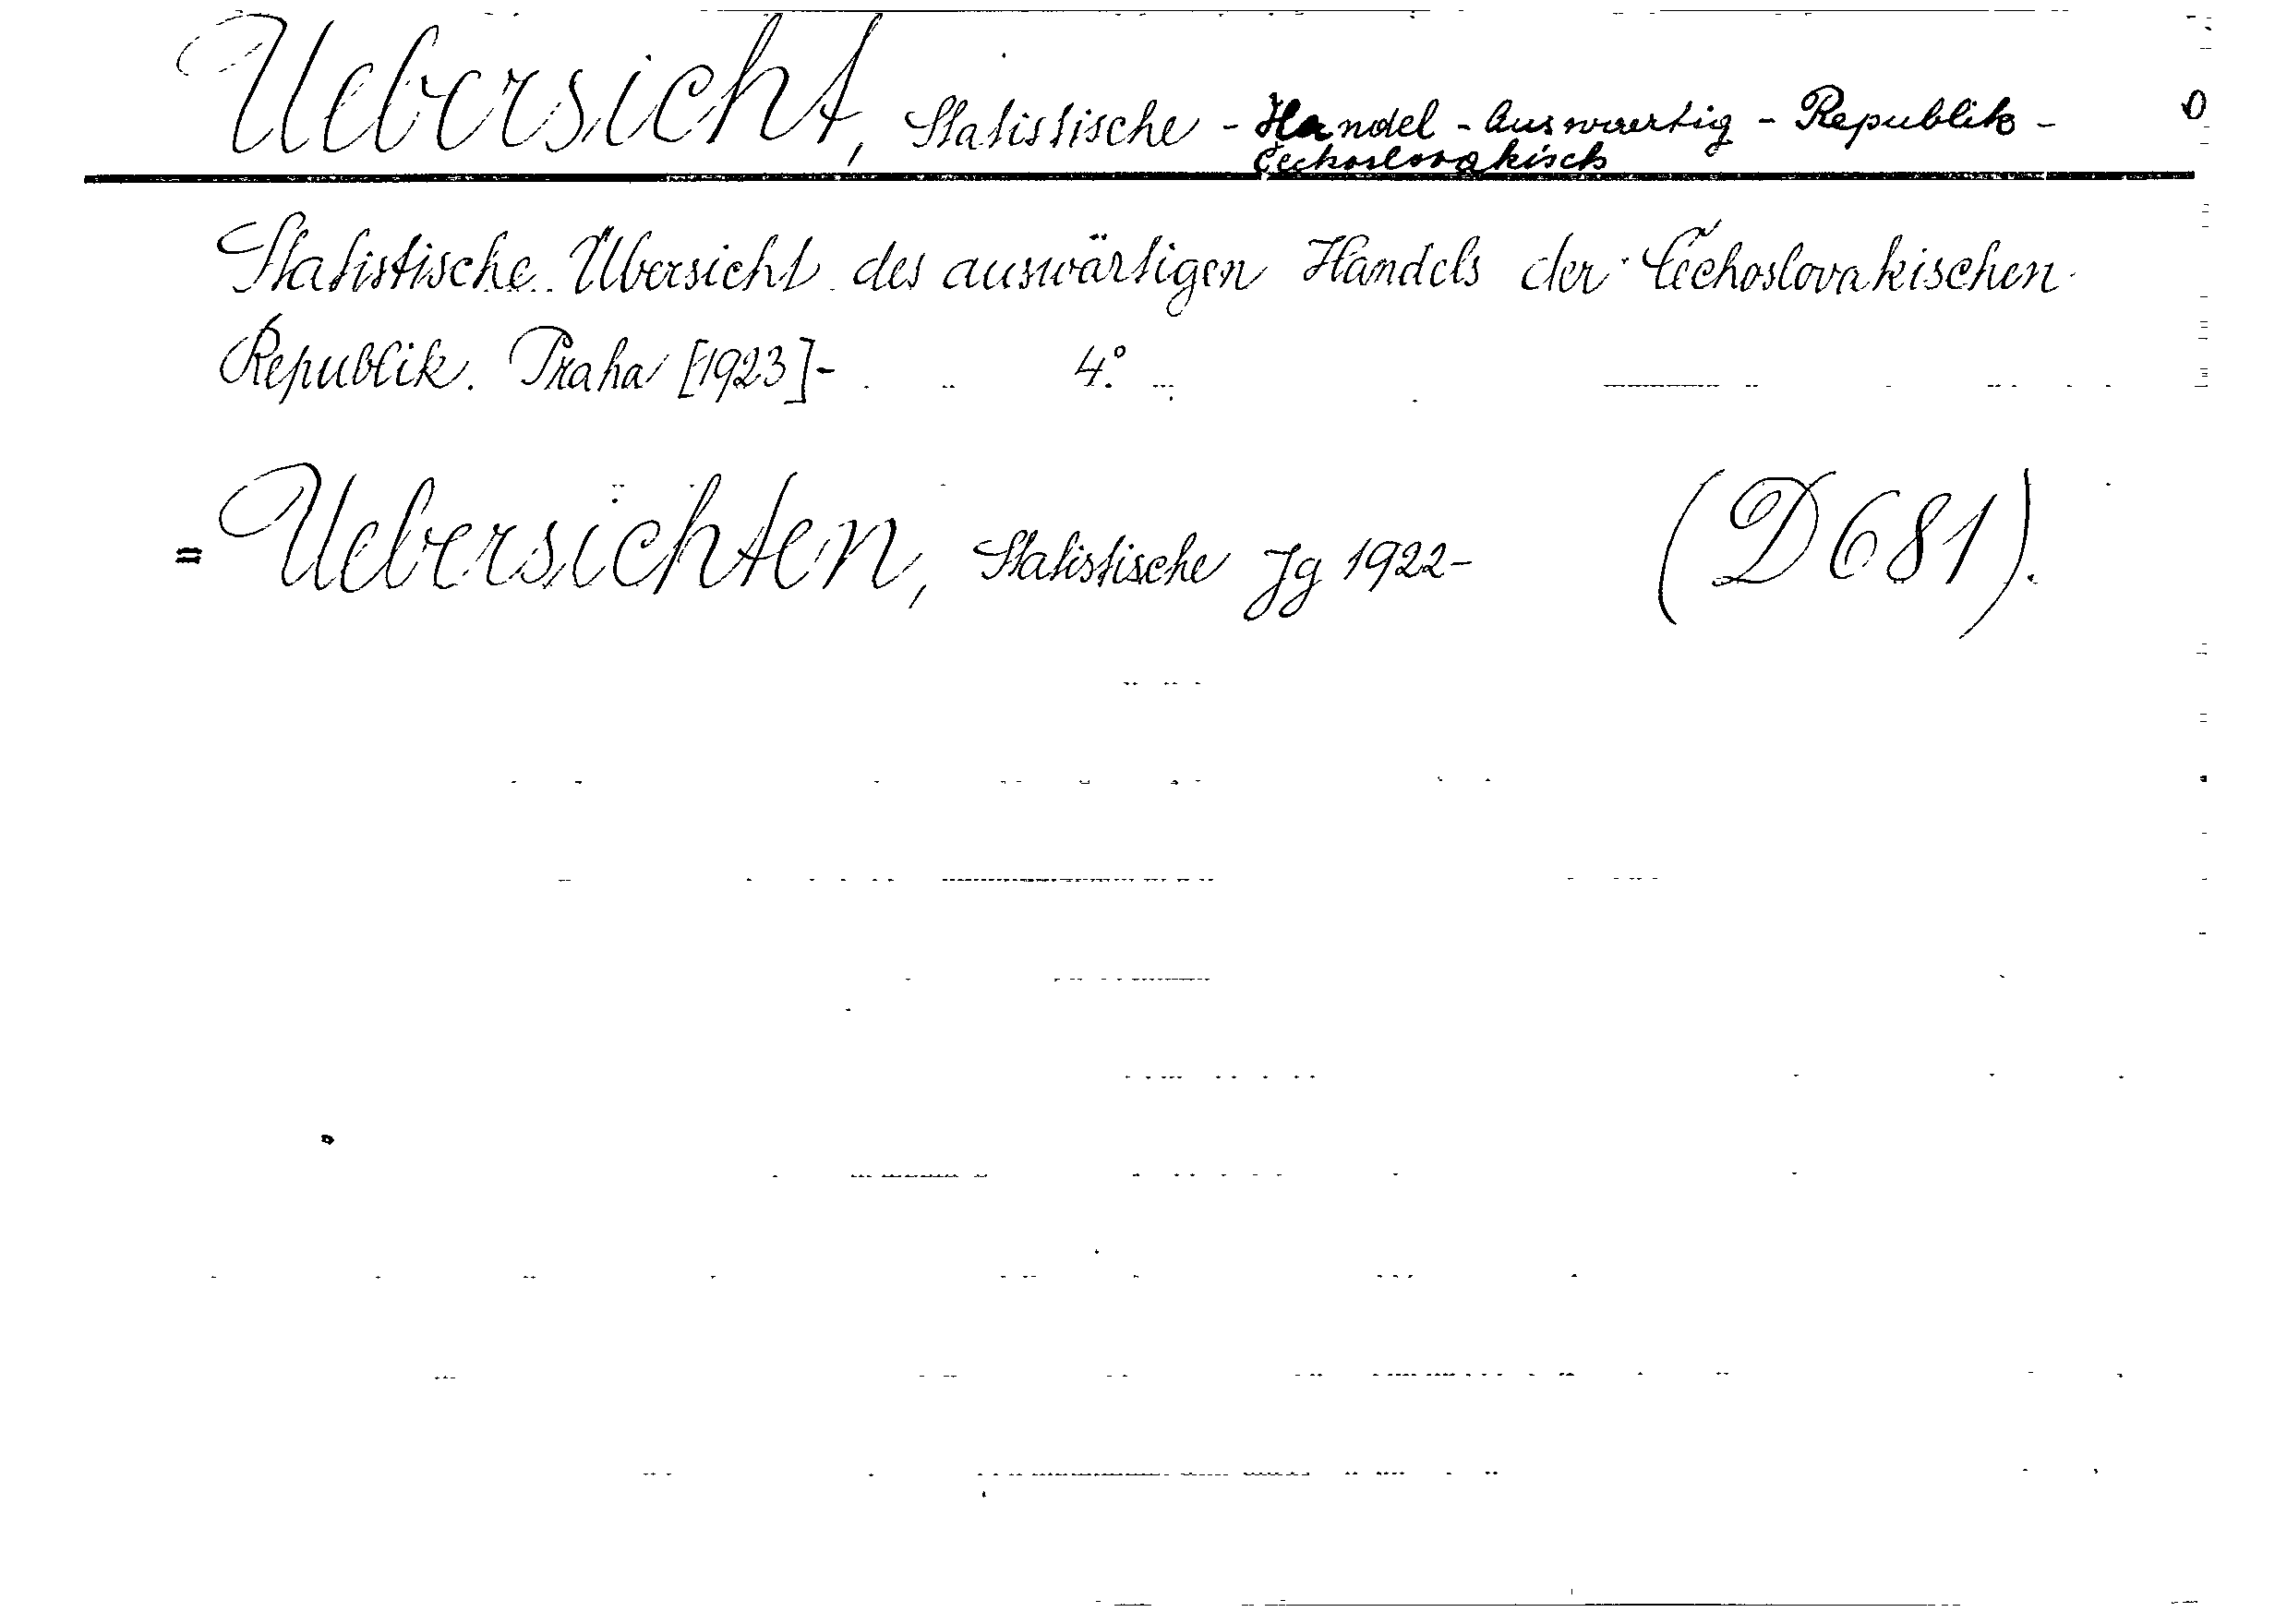 Uebersicht, Statistische - Handel - Auswaertig - Republik -
Čechoslovakisch
Statistische Übersicht des auswärtigen Handels der Čechoslovakischen
Republik. Praha [1923]- 4°.
= Uebersichten, Statistische Jg 1922- (D 681).